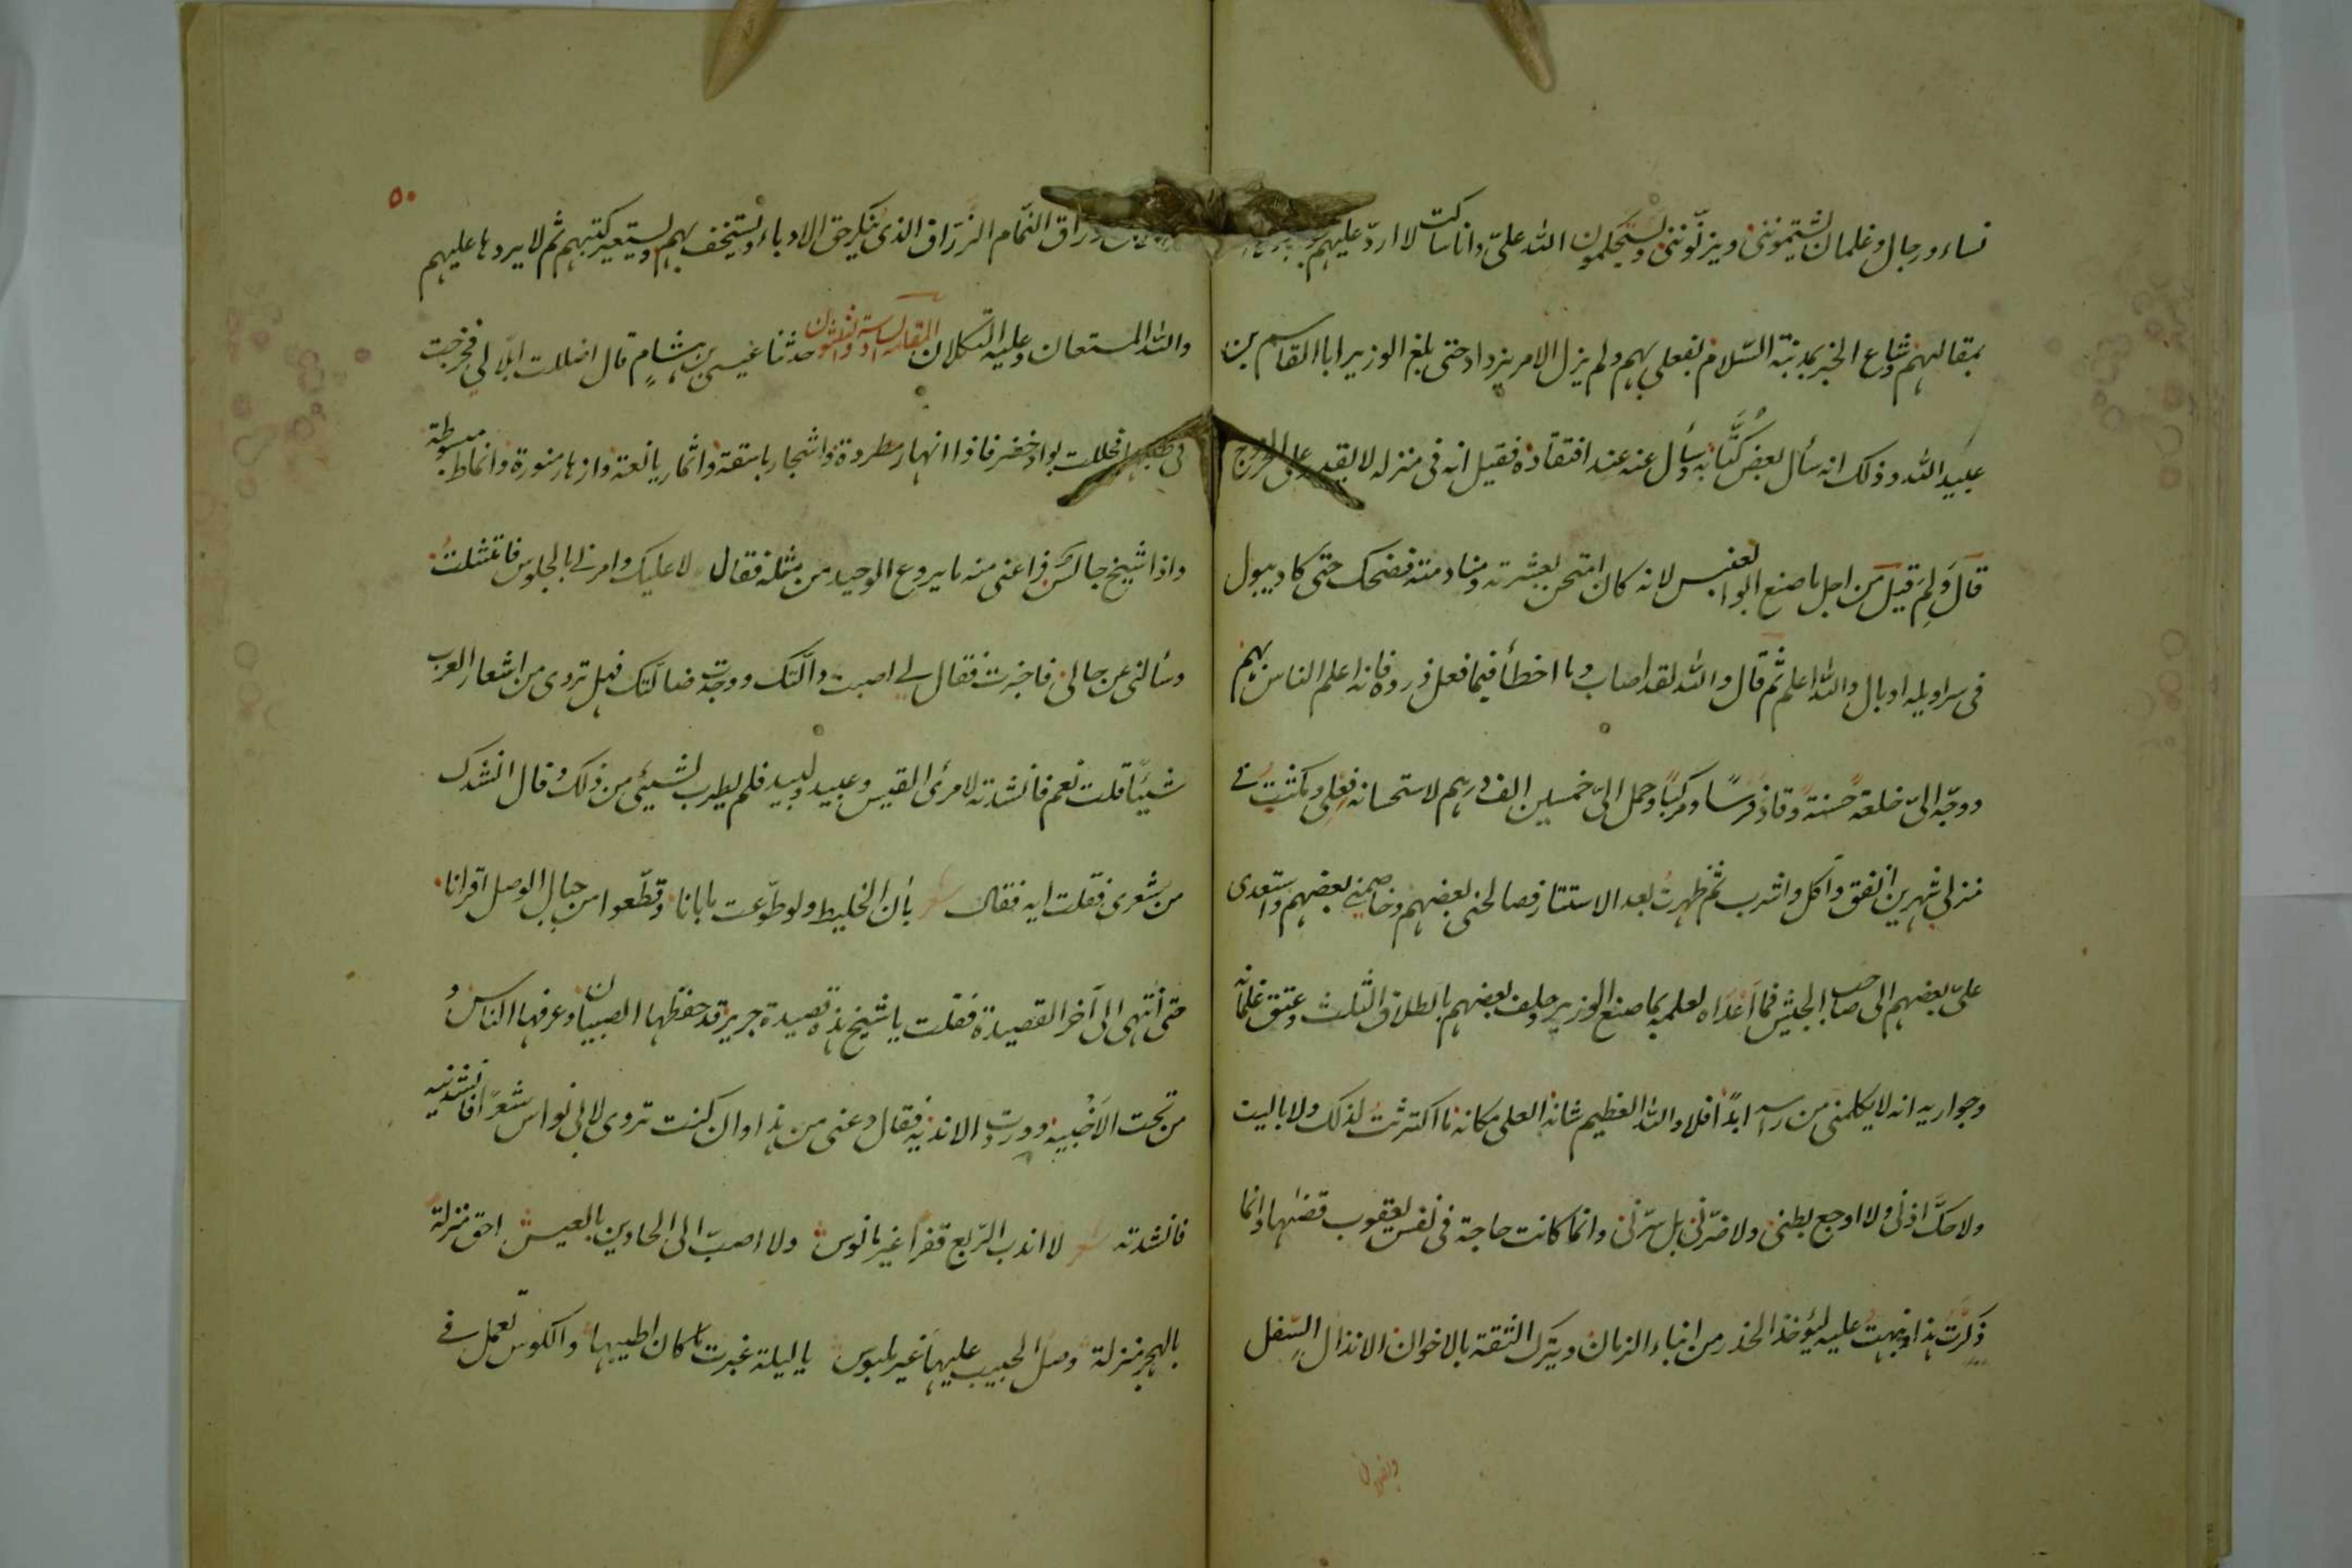 نساء ورجال وغلمان يشتمونني ويزنّونني ويستحكمون الله عليّ وانا ساكت لا اردّ عليهم
بمقالهم وشاع الخبر بمدينة السّلام بفعلي بهم ولم يزل الامر يزداد حتى بلغ الوزير ابا القاسم بن
عبيد الله وذلك انه سأل بعض كُتّابه وسأل عنه عند افتقاده فقيل انه في منزله لا يقدر على الخروج
قال ولِمَ قيل من اجل ما صنع ابو العنبس لانه كان امتحن بعشرته ومنادمته فضحك حتى كاد يبول
في سراويله او بال والله اعلم ثم قال والله لقد اصاب وما اخطأ فيما فعل ذروه فانه اعلم الناس بهم
ووجّه اليّ خلعة حسنة وقاد فرسًا ومركبًا وحمل اليّ خمسين الف درهم لاستحسانه فعلي ومكثت في
منزلي شهرين انفق وآكل واشرب ثم ظهرت بعد الاستتار فصالحني بعضهم وخاصمني بعضهم واستعدى
عليّ بعضهم الى صاحب الجيش فما اعداه لعلمه بما صنع الوزير وحلف بعضهم بالطلاق الثلث وعتق غلمانه
وجواريه انه لا يكلمني من رأسه ابدًا فلا والله العظيم شانه العلي مكانه ما اكترثت لذلك ولا باليت
ولا حكّ اذني ولا اوجع بطني ولا ضرّني بل سرّني وانما كانت حاجة في نفس يعقوب قضىها وانما
ذكرت هذا ونبهت عليه ليؤخذ الحذر من ابناء الزمان ويترك الثقة بالاخوان الانذال السّفل
وبفلان
٥٠
الورّاق النمّام الزرّاق الذي ينكر حق الادباء ويستخف بهم ويستعير كتبهم ثم لا يردها عليهم
والله المستعان وعليه التكلان المقامة السادسة والثلثون حدثنا عيسى بن هشام قال اضللت ابلا لي فخرجت
في طلبها فحللت بواد خضر فاذا انهار مطردة واشجار باسقة واثمار يانعة وازهار منورة وانماط مبسوطة
واذا شيخ جالس فراعني منه ما يروع الوحيد من مثله فقال لا عليك وامرني بالجلوس فامتثلت
وسألني عن حالي فاخبرت فقال لي اصبت دالّتك ووجدت ضالّتك فهل تروي من اشعار العرب
شيئًا قلت نعم فانشدته لامرئ القيس وعبيد ولبيد فلم يطرب لشيئ من ذلك وقال انشدك
من شعري فقلت ايه فقال شعر بان الخليط ولو طوّعت ما بانا وقطّعوا من حبال الوصل اقرانا
حتى انتهى الى آخر القصيدة فقلت يا شيخ هذه قصيدة جرير قد حفظها الصبيان وعرفها الناس و
من تحت الاخبية ووردت الاندية فقال دعني من هذا وان كنت تروي لابي نواس شعرًا فانشدنيه
فانشدته شعر لا اندب الرّبع قفرًا غير مانوس ولا اصبّ الى الحادين بالعيس احق منزلة
بالهجر منزلة وصل الحبيب عليها غير ملبوس يا ليلة غبرت ما كان اطيبها والكوس تعمل في